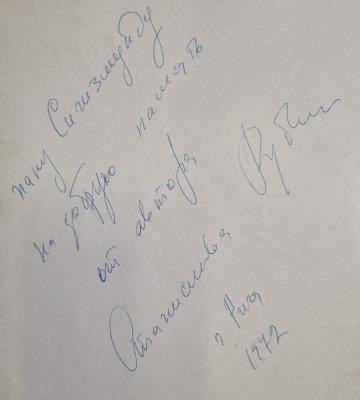 пану Сигизмунду
на добрую память
от автора
Станислава Рубин
г. Рига
1972